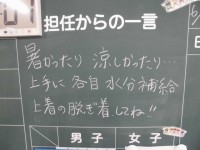 担任からの一言
暑かったり 涼しかったり…
上手に 各自 水分補給
上着の脱ぎ着してね!!
男子 女子